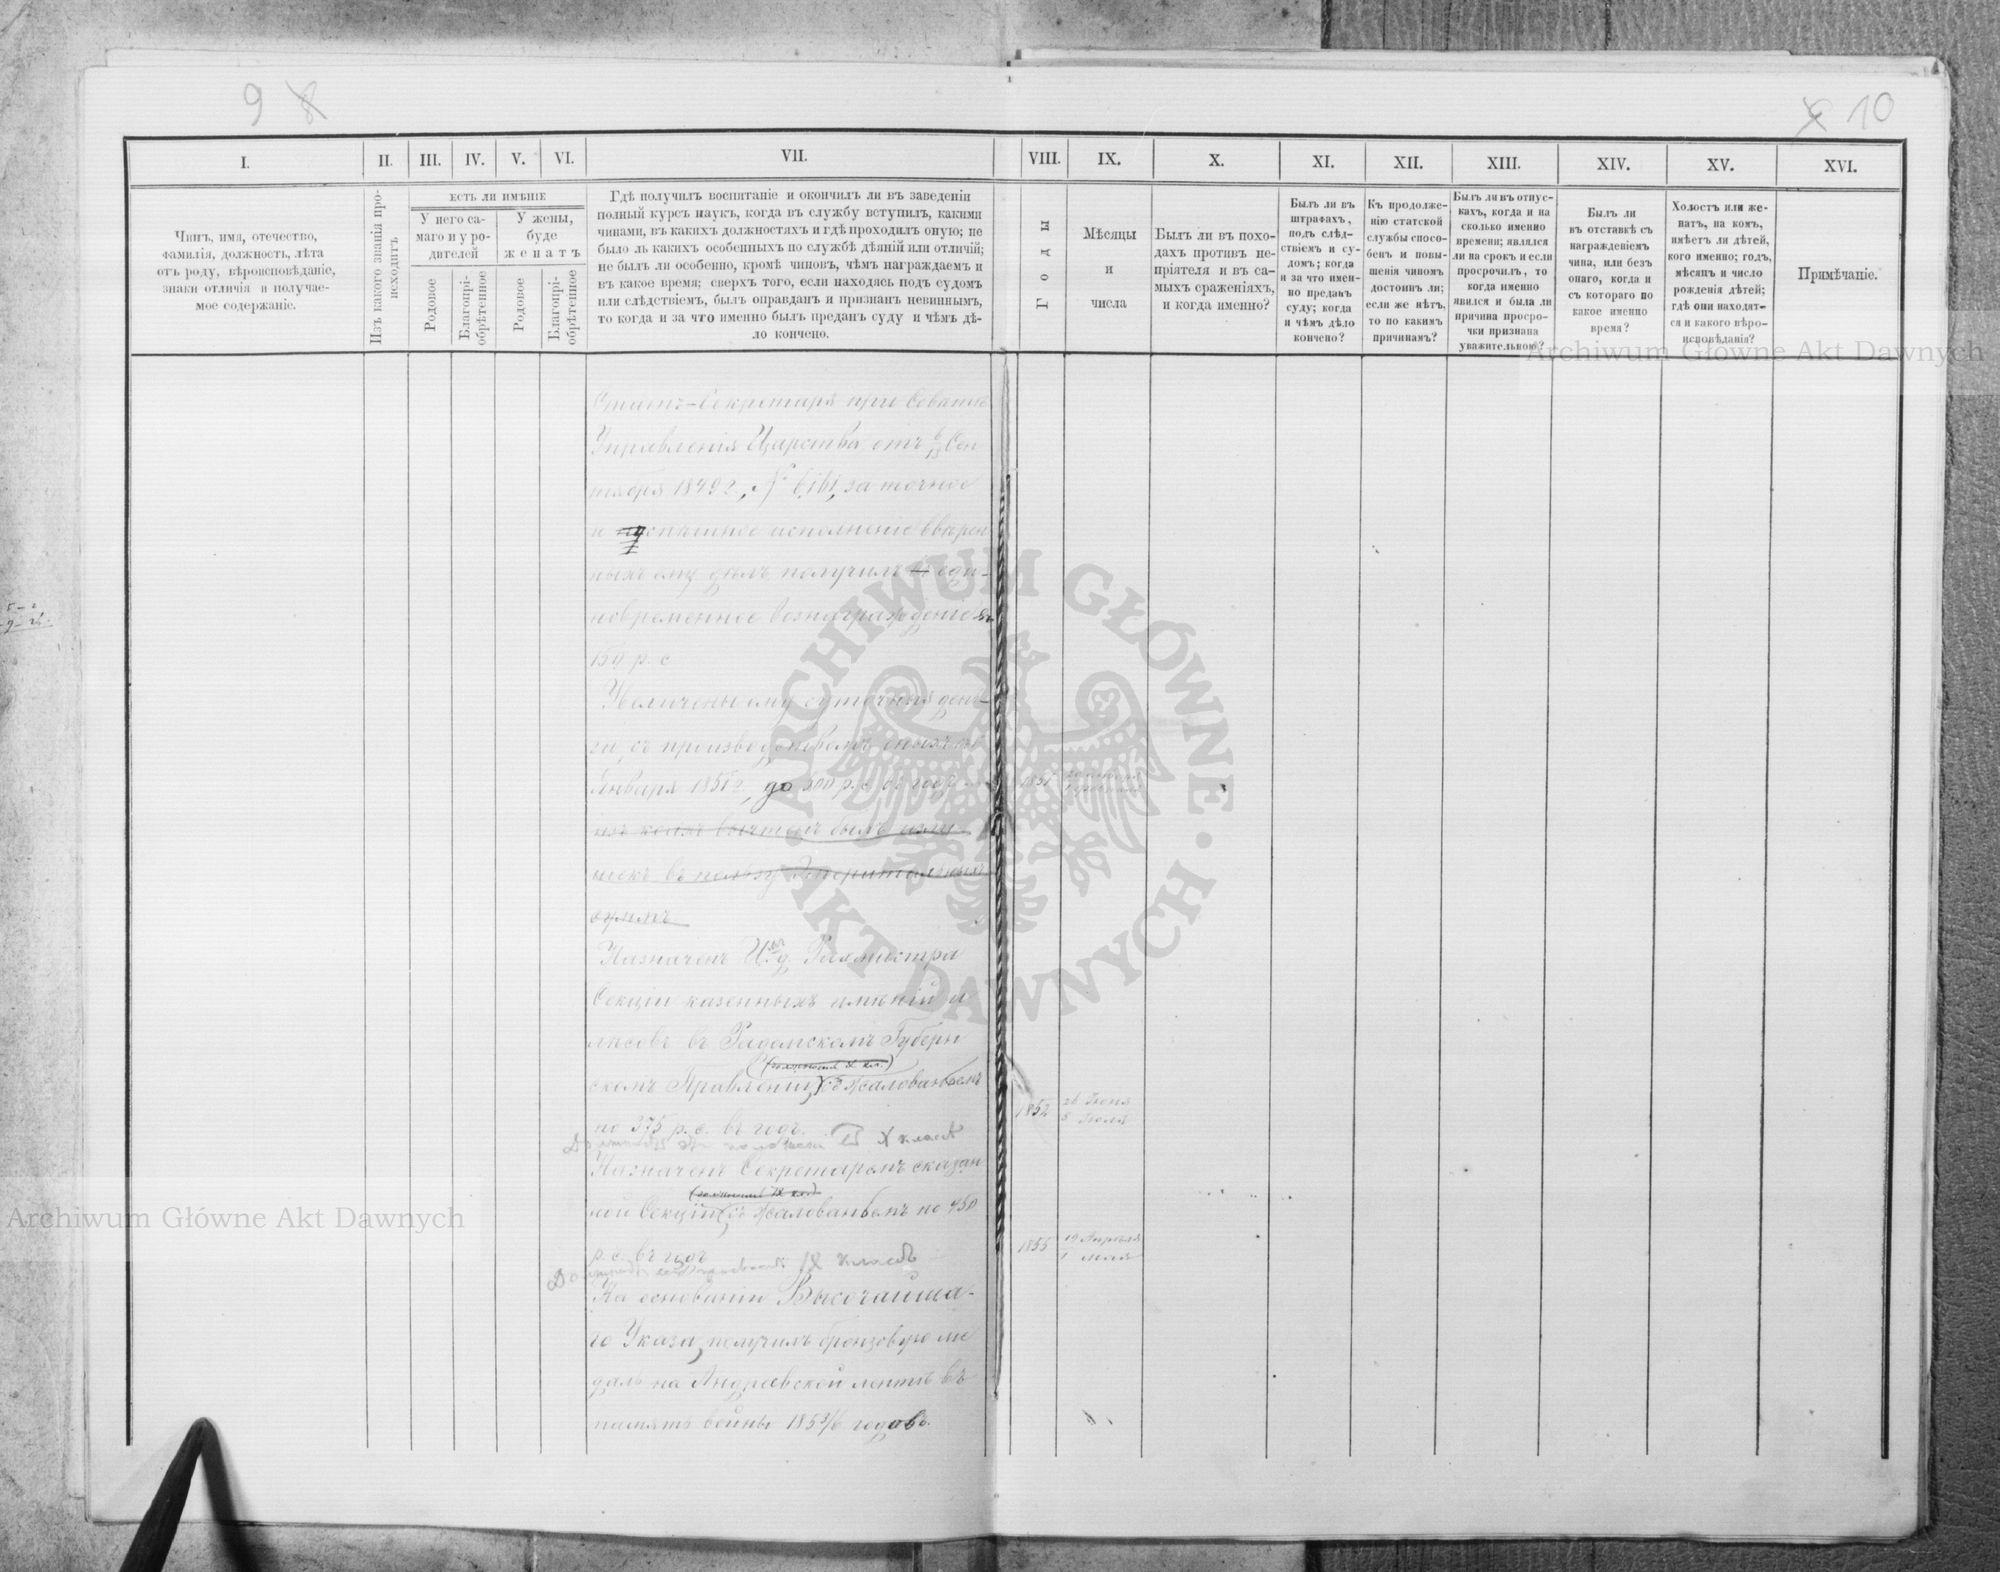 9 8
10
I.
II.
III.
IV.
V.
VI.
VII.
VIII.
IX.
X.
XI.
XII.
XIII.
XIV.
XV.
XVI.
Чинъ, имя, отечество,
фамилія, должность, лѣта
отъ роду, вѣроисповѣданіе,
знаки отличія и получае-
мое содержаніе.
Изъ какого званія про-
исходитъ
ЕСТЬ ЛИ ИМѢНІЕ
У него са-
маго и у ро-
дителей
У жены,
буде
женатъ
Родовое
Благопрі-
обрѣтенное
Родовое
Благопрі-
обрѣтенное
Гдѣ получилъ воспитаніе и окончилъ ли въ заведеніи
полный курсъ наукъ, когда въ службу вступилъ, какими
чинами, въ какихъ должностяхъ и гдѣ проходилъ оную; не
было ль какихъ особенныхъ по службѣ дѣяній или отличій;
не былъ ли особенно, кромѣ чиновъ, чѣмъ награждаемъ и
въ какое время; сверхъ того, если находясь подъ судомъ
или слѣдствіемъ, былъ оправданъ и признанъ невиннымъ,
то когда и за что именно былъ преданъ суду и чѣмъ дѣ-
ло кончено.
Годы
Мѣсяцы
и
числа
Былъ ли въ похо-
дахъ противъ не-
пріятеля и въ са-
мыхъ сраженіяхъ,
и когда именно?
Былъ ли въ
штрафахъ,
подъ слѣд-
ствіемъ и су-
домъ; когда
и за что имен-
но преданъ
суду; когда
и чѣмъ дѣло
кончено?
Къ продолже-
нію статской
службы спосо-
бенъ и повы-
шенія чиномъ
достоинъ ли;
если же нѣтъ,
то по какимъ
причинамъ?
Былъ ли въ отпус-
кахъ, когда и на
сколько именно
времени; являлся
ли на срокъ и если
просрочилъ, то
когда именно
явился и была ли
причина просро-
чки признана
уважительною?
Былъ ли
въ отставкѣ съ
награжденіемъ
чина, или безъ
онаго, когда и
съ котораго по
какое именно
время?
Холостъ или же-
натъ, на комъ,
имѣетъ ли дѣтей,
кого именно; годъ,
мѣсяцъ и число
рожденія дѣтей;
гдѣ они находят-
ся и какого вѣро-
исповѣданія?
Примѣчаніе.
Статсъ-Секретаря при Совѣтѣ
Управленія Царства отъ 6/18 Сен
тября 1849 г., № за точное
и успѣшное исполненіе ввѣрен
ныхъ ему дѣлъ получилъ еди-
новременное вознагражденіе
150 р. с
Увеличены ему суточныя день-
ги, съ производствомъ оныхъ съ
Января 1851 г, до 300 р. с. въ годъ
1851
изъ коихъ вычтенъ былъ изли
шекъ въ пользу Эмеритальныхъ
суммъ
Назначенъ И. д. Рахмистра
Секціи казенныхъ имѣній и
лѣсовъ въ Радомскомъ Губерн
скомъ Правленіи, съ жалованьемъ
по 375 р. с. въ годъ.
1852 26 Іюня
8 Іюля
X класса
Назначенъ Секретаремъ сказан
ной Секціи, съ жалованьемъ по 450
р. с. въ годъ
1855 19 Апрѣля
1 Мая
IX класса
На основаніи Высочайша-
го Указа, получилъ бронзовую ме
даль на Андреевской лентѣ въ
память войны 1853/6 годовъ.
Archiwum Główne Akt Dawnych
Archiwum Główne Akt Dawnych
ARCHIWUM GŁÓWNE · AKT DAWNYCH ·